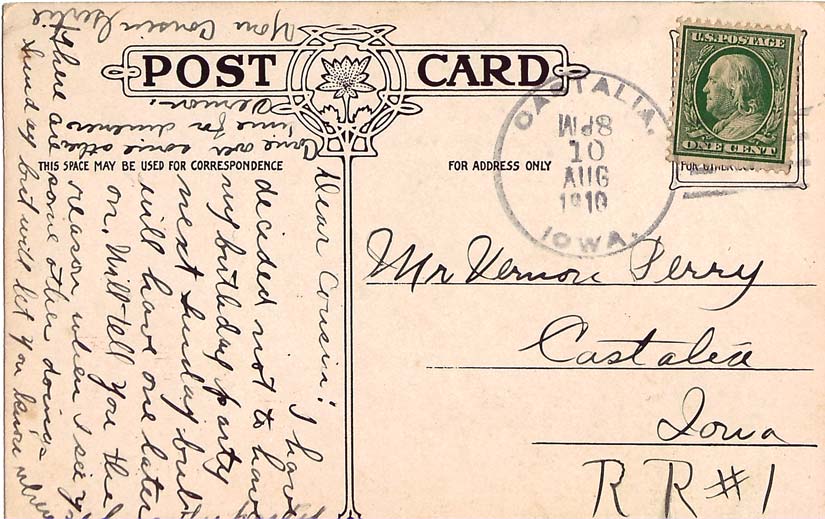 POST CARD
THIS SPACE MAY BE USED FOR CORRESPONDENCE
FOR ADDRESS ONLY
U.S. POSTAGE
ONE CENT
CASTALIA,
8PM
10
AUG
1910
IOWA.
Mr Vernon Perry
Castalia
Iowa
RR#1
Dear Cousin: I have
decided not to have
my birthday party
next Sunday but
will have one later
on. Will tell you the
reason when I see
There are some other doings
Sunday but will let you know
Come over some other
time for dinner
Vernon.
Your Cousin